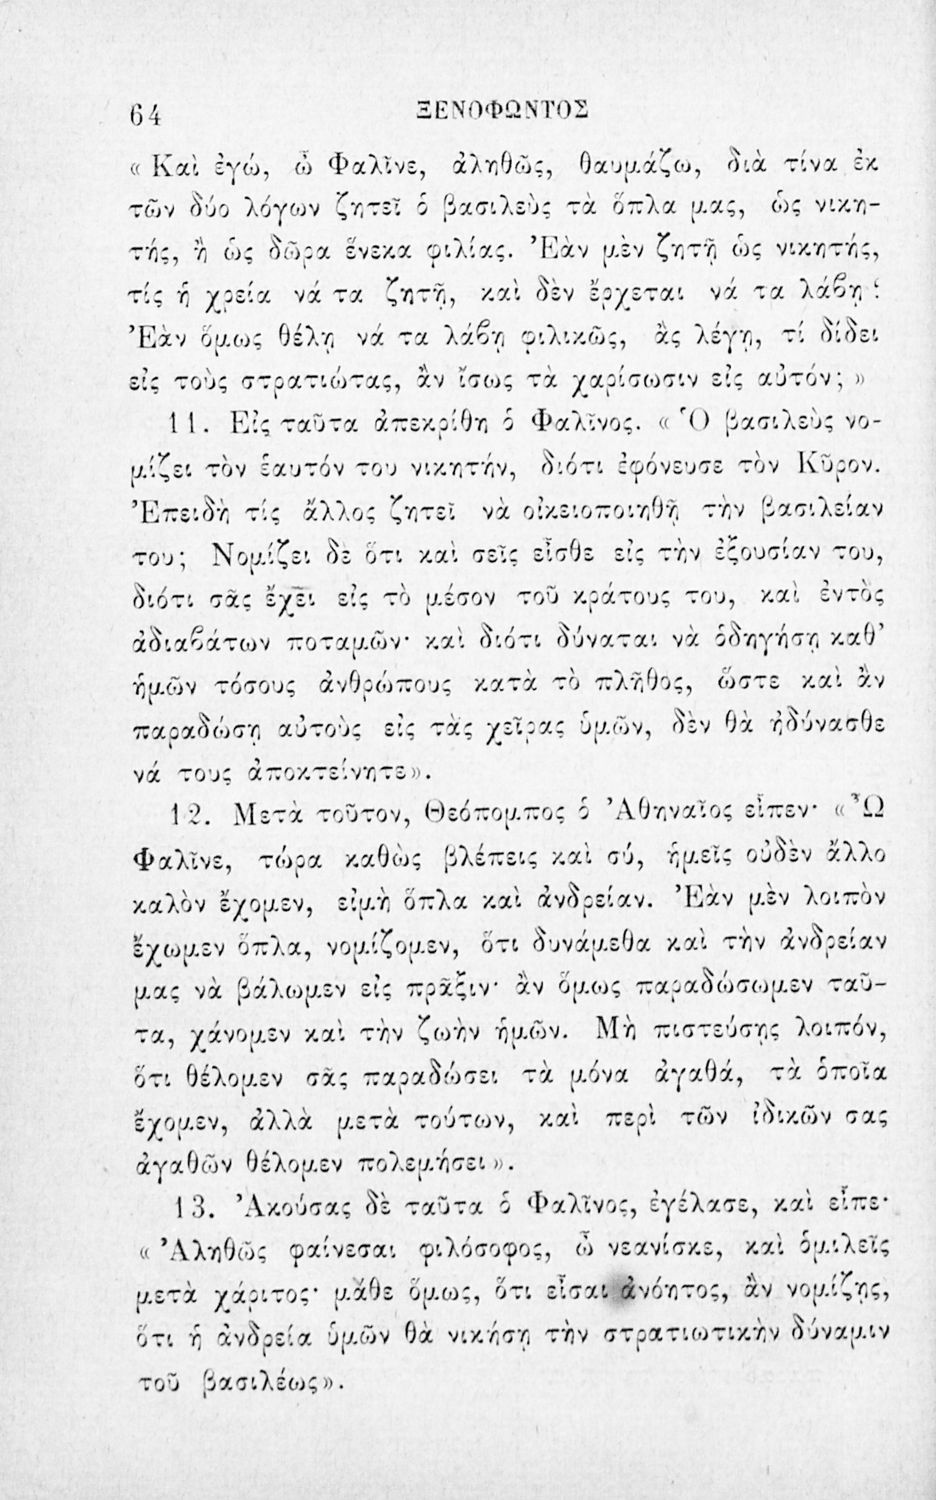 64 ΞΕΝΟΦΩΝΤΟΣ
« Καὶ ἐγώ, ὦ Φαλῖνε, ἀληθῶς, θαυμάζω, διὰ τίνα ἐκ
τῶν δύο λόγων ζητεῖ ὁ βασιλεὺς τὰ ὅπλα μας, ὡς νικη-
τής, ἢ ὡς δῶρα ἕνεκα φιλίας. Ἐὰν μὲν ζητῇ ὡς νικητής,
τίς ἡ χρεία νά τα ζητῇ, καὶ δὲν ἔρχεται νά τα λάβῃ;
Ἐὰν ὅμως θέλῃ νά τα λάβῃ φιλικῶς, ἂς λέγῃ, τί δίδει
εἰς τοὺς στρατιώτας, ἂν ἴσως τὰ χαρίσωσιν εἰς αὐτόν; »
11. Εἰς ταῦτα ἀπεκρίθη ὁ Φαλῖνος. « Ὁ βασιλεὺς νο-
μίζει τὸν ἑαυτόν του νικητήν, διότι ἐφόνευσε τὸν Κῦρον.
Ἐπειδὴ τίς ἄλλος ζητεῖ νὰ οἰκειοποιηθῇ τὴν βασιλείαν
του; Νομίζει δὲ ὅτι καὶ σεῖς εἶσθε εἰς τὴν ἐξουσίαν του,
διότι σᾶς ἔχει εἰς τὸ μέσον τοῦ κράτους του, καὶ ἐντὸς
ἀδιαβάτων ποταμῶν· καὶ διότι δύναται νὰ ὁδηγήσῃ καθ’
ἡμῶν τόσους ἀνθρώπους κατὰ τὸ πλῆθος, ὥστε καὶ ἂν
παραδώσῃ αὐτοὺς εἰς τὰς χεῖρας ὑμῶν, δὲν θὰ ἠδύνασθε
νά τους ἀποκτείνητε».
12. Μετὰ τοῦτον, Θεόπομπος ὁ Ἀθηναῖος εἶπεν· « Ὦ
Φαλῖνε, τώρα καθὼς βλέπεις καὶ σύ, ἡμεῖς οὐδὲν ἄλλο
καλὸν ἔχομεν, εἰμὴ ὅπλα καὶ ἀνδρείαν. Ἐὰν μὲν λοιπὸν
ἔχωμεν ὅπλα, νομίζομεν, ὅτι δυνάμεθα καὶ τὴν ἀνδρείαν
μας νὰ βάλωμεν εἰς πρᾶξιν· ἂν ὅμως παραδώσωμεν ταῦ-
τα, χάνομεν καὶ τὴν ζωὴν ἡμῶν. Μὴ πιστεύσῃς λοιπόν,
ὅτι θέλομεν σᾶς παραδώσει τὰ μόνα ἀγαθά, τὰ ὁποῖα
ἔχομεν, ἀλλὰ μετὰ τούτων, καὶ περὶ τῶν ἰδικῶν σας
ἀγαθῶν θέλομεν πολεμήσει».
13. Ἀκούσας δὲ ταῦτα ὁ Φαλῖνος, ἐγέλασε, καὶ εἶπε·
« Ἀληθῶς φαίνεσαι φιλόσοφος, ὦ νεανίσκε, καὶ ὁμιλεῖς
μετὰ χάριτος· μάθε ὅμως, ὅτι εἶσαι ἀνόητος, ἂν νομίζῃς,
ὅτι ἡ ἀνδρεία ὑμῶν θὰ νικήσῃ τὴν στρατιωτικὴν δύναμιν
τοῦ βασιλέως».